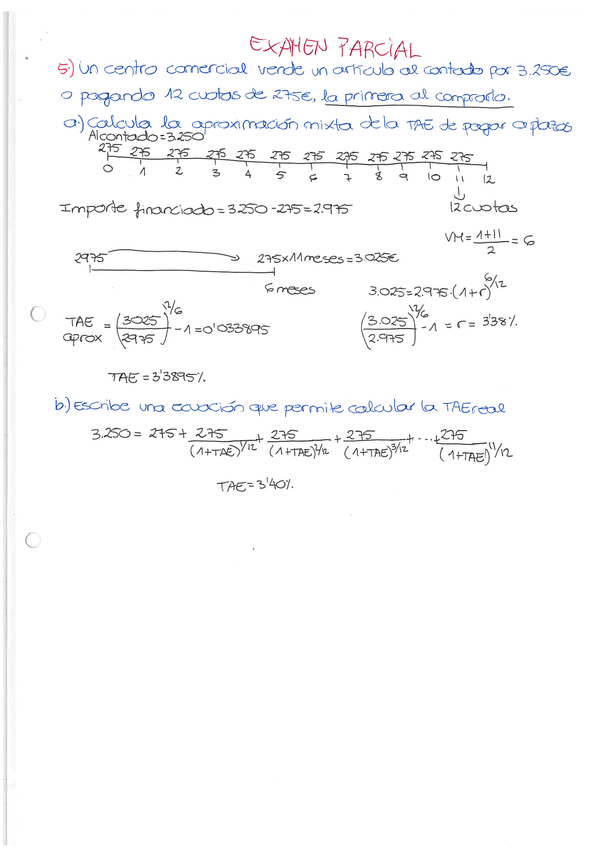 EXAMEN PARCIAL
5.) Un centro comercial vende un artículo al contado por 3.250€
o pagando 12 cuotas de 275€, la primera al comprarlo.
a.) Calcula la aproximación mixta de la TAE de pagar a plazos
Al contado=3.250
275 275 275 275 275 275 275 275 275 275 275 275
0 1 2 3 4 5 6 7 8 9 10 11 12
Importe financiado=3250-275=2.975 12 cuotas
VM=(1+11)/2=6
2975 275x11 meses=3.025€
6 meses 3.025=2.975·(1+r)^6/12
TAE aprox = (3025/2975)^12/6 -1=0'033895 (3.025/2.975)^12/6 -1=r=3'38%.
TAE=3'3895%.
b.) Escribe una ecuación que permite calcular la TAE real
3.250=275+275/(1+TAE)^1/12+275/(1+TAE)^2/12+275/(1+TAE)^3/12+...+275/(1+TAE)^11/12
TAE=3'40%.